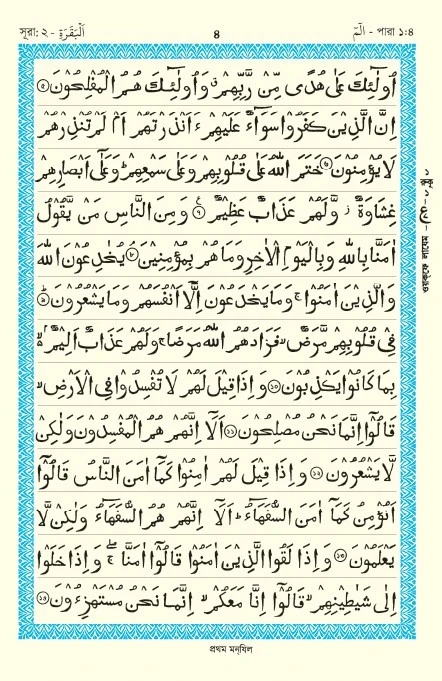 সূরা: ২ - اَلْبَقَرَةِ ৪ الٓمّٓ - পারা ১:৪
اُولٰٓئِكَ عَلٰى هُدًى مِّنْ رَّبِّهِمْ ۙ وَاُولٰٓئِكَ هُمُ الْمُفْلِحُوْنَ ۝৫
اِنَّ الَّذِيْنَ كَفَرُوْا سَوَآءٌ عَلَيْهِمْ ءَاَنْذَرْتَهُمْ اَمْ لَمْ تُنْذِرْهُمْ
لَا يُؤْمِنُوْنَ ۝৬ خَتَمَ اللّٰهُ عَلٰى قُلُوْبِهِمْ وَعَلٰى سَمْعِهِمْ ؕ وَعَلٰٓى اَبْصَارِهِمْ
غِشَاوَةٌ ؗ وَّلَهُمْ عَذَابٌ عَظِيْمٌ ۝৭ وَمِنَ النَّاسِ مَنْ يَّقُوْلُ
اٰمَنَّا بِاللّٰهِ وَبِالْيَوْمِ الْاٰخِرِ وَمَا هُمْ بِمُؤْمِنِيْنَ ۝৮ يُخٰدِعُوْنَ اللّٰهَ
وَالَّذِيْنَ اٰمَنُوْا ۚ وَمَا يَخْدَعُوْنَ اِلَّآ اَنْفُسَهُمْ وَمَا يَشْعُرُوْنَ ۝৯
فِيْ قُلُوْبِهِمْ مَّرَضٌ ۙ فَزَادَهُمُ اللّٰهُ مَرَضًا ۚ وَلَهُمْ عَذَابٌ اَلِيْمٌ ۢ ۙ
بِمَا كَانُوْا يَكْذِبُوْنَ ۝১০ وَاِذَا قِيْلَ لَهُمْ لَا تُفْسِدُوْا فِى الْاَرْضِ ۙ
قَالُوْٓا اِنَّمَا نَحْنُ مُصْلِحُوْنَ ۝১১ اَلَآ اِنَّهُمْ هُمُ الْمُفْسِدُوْنَ وَلٰكِنْ
لَّا يَشْعُرُوْنَ ۝১২ وَاِذَا قِيْلَ لَهُمْ اٰمِنُوْا كَمَآ اٰمَنَ النَّاسُ قَالُوْٓا
اَنُؤْمِنُ كَمَآ اٰمَنَ السُّفَهَآءُ ؕ اَلَآ اِنَّهُمْ هُمُ السُّفَهَآءُ وَلٰكِنْ لَّا
يَعْلَمُوْنَ ۝১৩ وَاِذَا لَقُوا الَّذِيْنَ اٰمَنُوْا قَالُوْٓا اٰمَنَّا ۖۚ وَاِذَا خَلَوْا
اِلٰى شَيٰطِيْنِهِمْ ۙ قَالُوْٓا اِنَّا مَعَكُمْ ۙ اِنَّمَا نَحْنُ مُسْتَهْزِءُوْنَ ۝১৪
প্রথম মনযিল